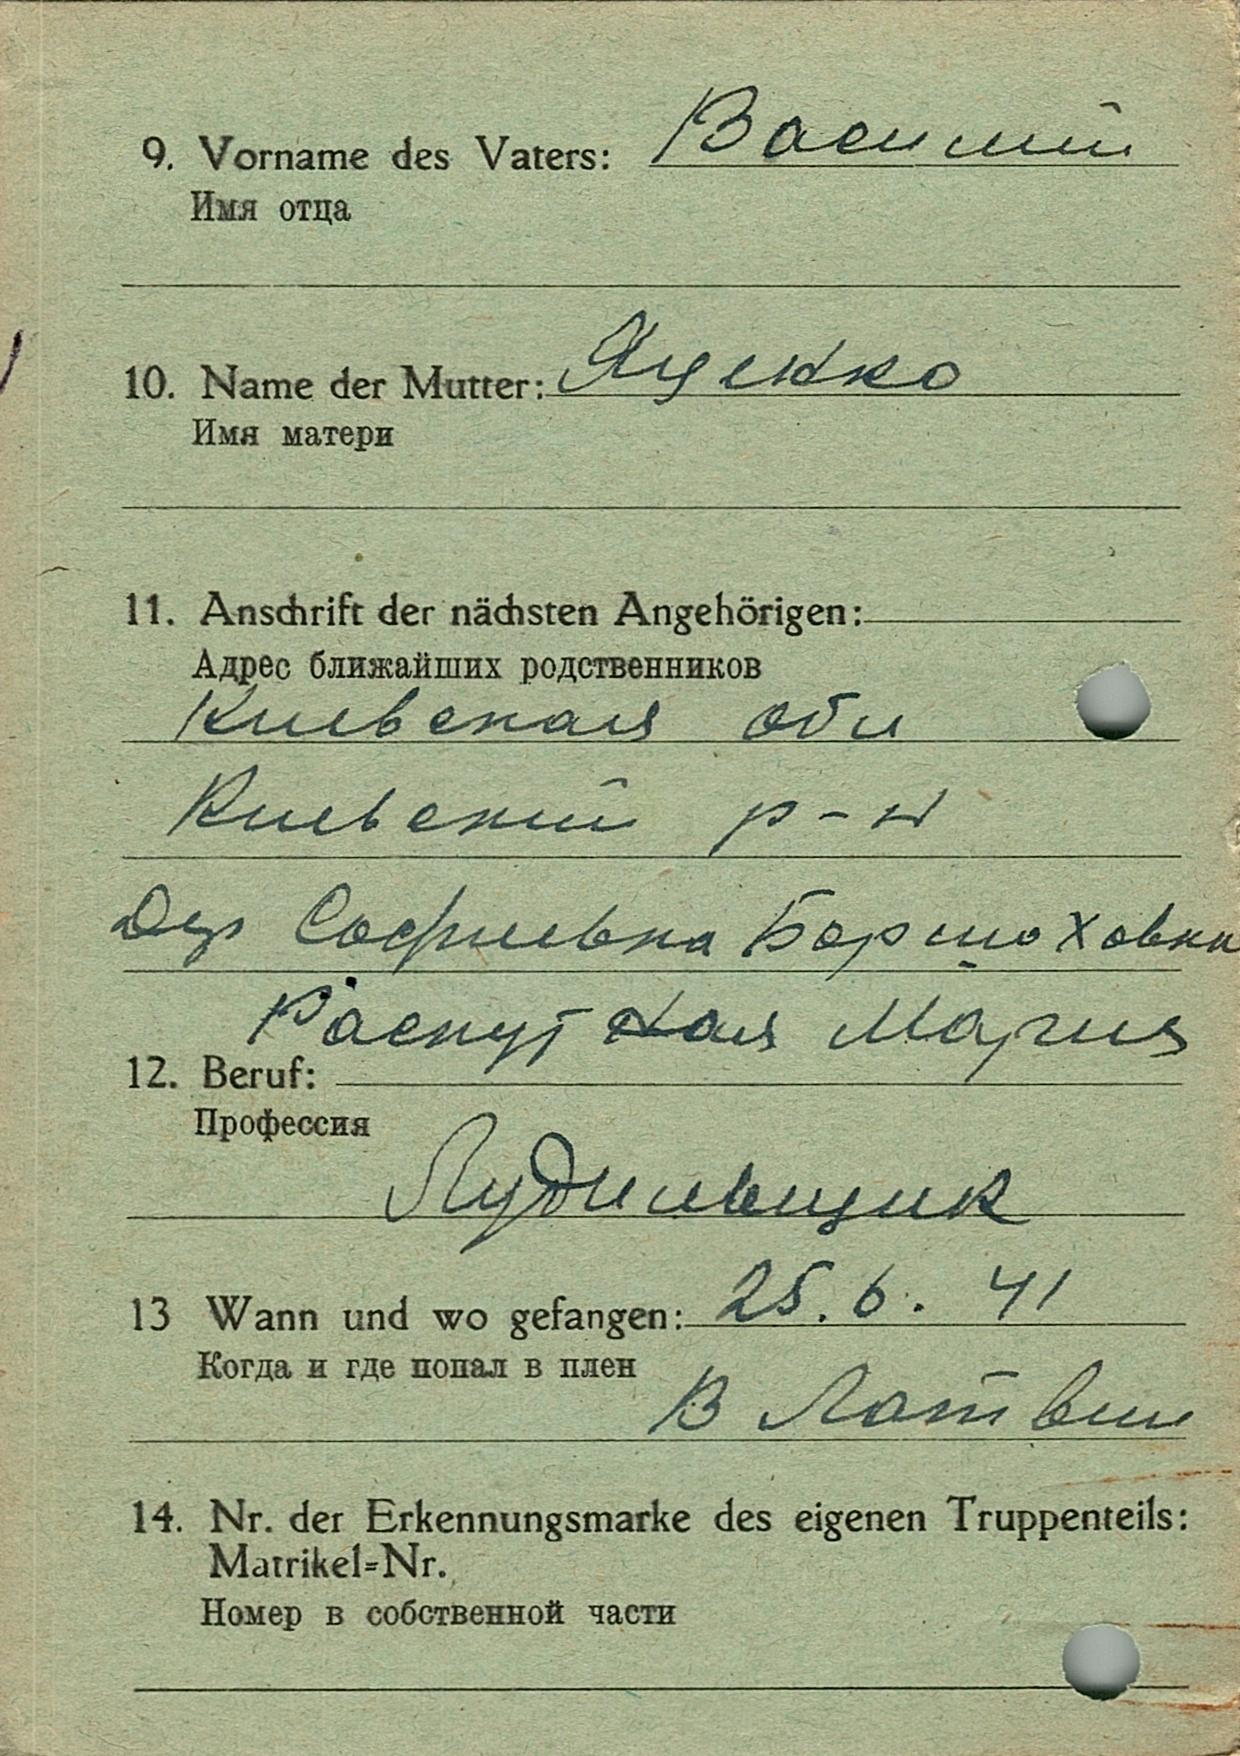 9. Vorname des Vaters: Василий
Имя отца
10. Name der Mutter: Яценко
Имя матери
11. Anschrift der nächsten Angehörigen:
Адрес ближайших родственников
Киевская обл
Киевский р-н
Дер Софиевка Борщоховка
Распутная Мария
12. Beruf:
Профессия
Лудильщик
13 Wann und wo gefangen: 25.6.41
Когда и где попал в плен
В Латвии
14. Nr. der Erkennungsmarke des eigenen Truppenteils:
Matrikel=Nr.
Номер в собственной части